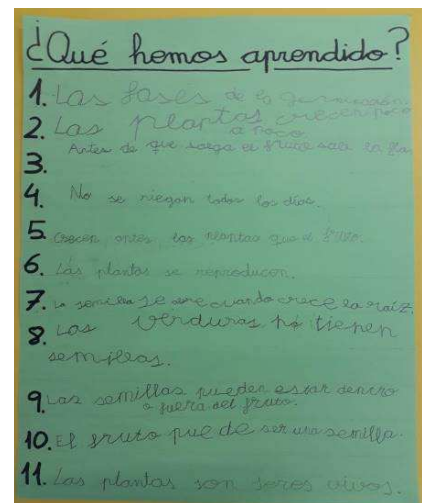 ¿Qué hemos aprendido?
1. Las fases de la germinación.
2. Las plantas crecen poco
a poco.
Antes de que salga el fruto sale la flor
3.
4. No se riegan todos los días.
5 Crecen antes las plantas que el fruto.
6. Las plantas se reproducen.
7. La semilla se abre cuando crece la raíz.
8. Las verduras no tienen
semillas.
9. Las semillas pueden estar dentro
o fuera del fruto.
10. El fruto puede ser una semilla.
11. Las plantas son seres vivos.